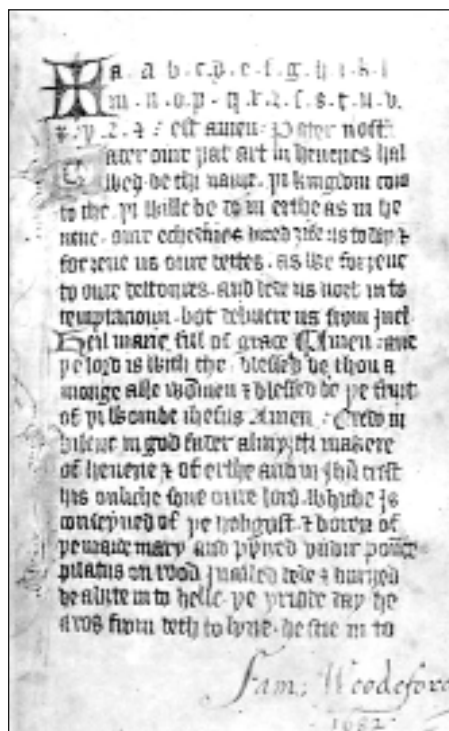 a · a b c d · e · f · g · h · i · k · l
m · n · o · p · q · r · ꝛ · ſ · s · t · u · v ·
x · y · z · ⁊ : est amen : Pater noſt
ater oure þat art in heuenes hal
wed be thi name · þi kingdom com
to the · þi wille be do in erthe as in he
uene · oure breed ȝiue us to day ⁊
forȝeue us oure dettes · as we forȝeue
to oure dettoures · and lede us noȝt in to
temptacioun · bot deliuere us from juel
Heil marie ful of grace Amen : aue
þe lord is with the · bleſſed be thou a
monge alle wom̄en ⁊ bleſſed be þe fruit
of þi wombe iheſus Amen : Credo in
bileue in god fader almyȝti makere
of heuene ⁊ of erthe and in ihū criſt
his ſone oure lord · whiche is
conſeyued of þe holigoſt · ⁊ boren of
þe mary and pyned vndir
pilatus on rood ⁊ buried
he aliȝte in to helle · þe þridde day he
aros from deth to lyue · he ſtie in to
Sam: Woodeford
1682